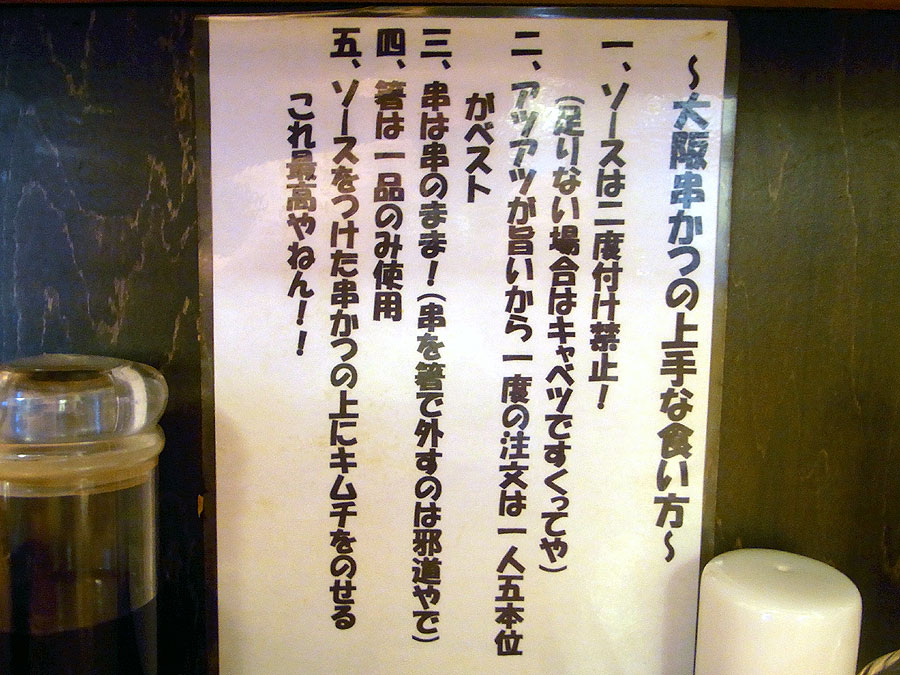 ～大阪串かつの上手な食い方～
一、ソースは二度付け禁止！
（足りない場合はキャベツですくってや）
二、アツアツが旨いから一度の注文は一人五本位
がベスト
三、串は串のまま！（串を箸で外すのは邪道やで）
四、箸は一品のみ使用
五、ソースをつけた串かつの上にキムチをのせる
これ最高やねん！！